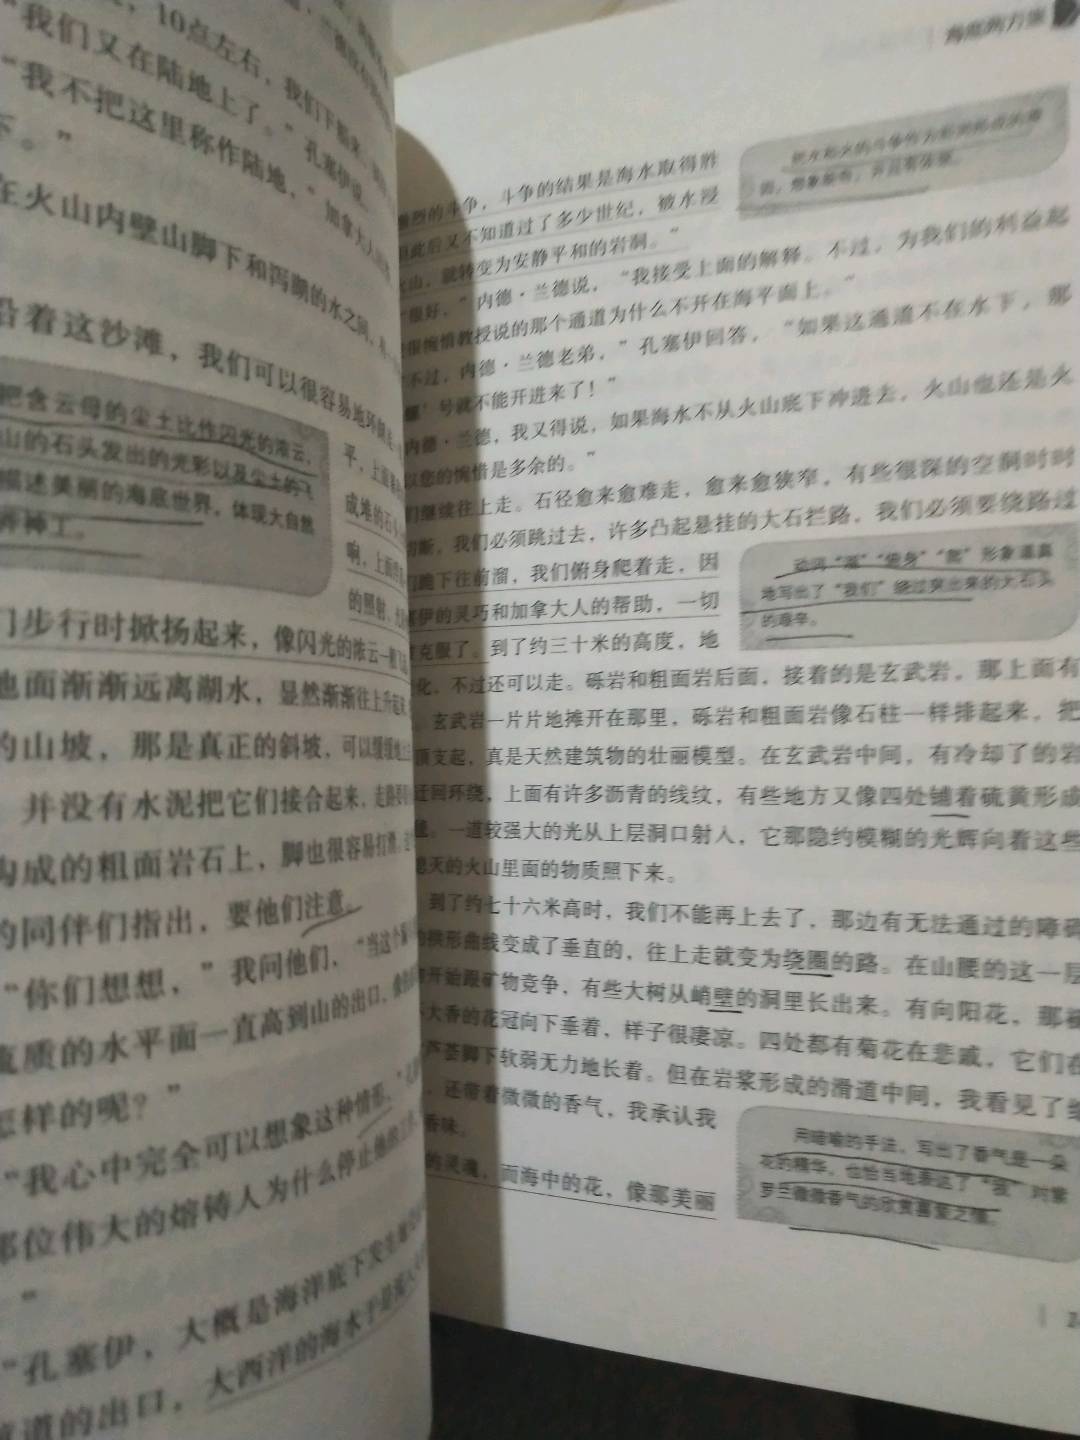 10点左右，我们下船来，
“我们又在陆地上了。”孔塞伊说。
“我不把这里称作陆地，”加拿大人
下。”
在火山内壁山脚下和泻湖的水之间，
沿着这沙滩，我们可以很容易地环
把含云母的尘土比作闪光的浓云，
山的石头发出的光彩以及尘土的飞
描述美丽的海底世界，体现大自然
斧神工。
平，上面
成堆的石头
啊，上面
的照射，
们步行时掀扬起来，像闪光的浓云一般飞
地面渐渐远离湖水，显然渐渐往上升起来，
的山坡，那是真正的斜坡，可以缓缓地上
并没有水泥把它们接合起来，走路要
构成的粗面岩石上，脚也很容易打滑，
的同伴们指出，要他们注意。
“你们想想，”我问他们，“当这个
质的水平面一直高到山的出口，
怎样的呢？”
“我心中完全可以想象这种情形，”
那位伟大的熔铸人为什么停止他的工作，
”
“孔塞伊，大概是海洋底下发生
道的出口，大西洋的海水于是
海底两万里
激烈的斗争，斗争的结果是海水取得胜
但此后又不知道过了多少世纪，被水浸
火山，就转变为安静平和的岩洞。”
把水和火的斗争作为形洞形成的原
因，想象新奇，并且有依据。
“很好，”内德·兰德说，“我接受上面的解释。不过，为我们的利益起
很惋惜教授说的那个通道为什么不开在海平面上。”
“不过，内德·兰德老弟，”孔塞伊回答，“如果这通道不在水下，那
螺’号就不能开进来了！”
内德·兰德，我又得说，如果海水不从火山底下冲进去，火山也还是火
以您的惋惜是多余的。”
们继续往上走。石径愈来愈难走，愈来愈狭窄，有些很深的空洞时时
切断，我们必须跳过去，许多凸起悬挂的大石拦路，我们必须要绕路过
们跪下往前溜，我们俯身爬着走，因
塞伊的灵巧和加拿大人的帮助，一切
克服了。到了约三十米的高度，地
动词“溜”“俯身”“爬”形象逼真
地写出了“我们”绕过突出来的大石头
的艰辛。
化，不过还可以走。砾岩和粗面岩后面，接着的是玄武岩，那上面有
玄武岩一片片地摊开在那里，砾岩和粗面岩像石柱一样排起来，把
顶支起，真是天然建筑物的壮丽模型。在玄武岩中间，有冷却了的岩
迂回环绕，上面有许多沥青的线纹，有些地方又像四处铺着硫黄形成
毯。一道较强大的光从上层洞口射入，它那隐约模糊的光辉向着这些
熄灭的火山里面的物质照下来。
到了约七十六米高时，我们不能再上去了，那边有无法通过的障碍
的拱形曲线变成了垂直的，往上走就变为绕圈的路。在山腰的这一层
开始跟矿物竞争，有些大树从峭壁的洞里长出来。有向阳花，那被
不大香的花冠向下垂着，样子很凄凉。四处都有菊花在悲戚，它们在
芦荟脚下软弱无力地长着。但在岩浆形成的滑道中间，我看见了
，还带着微微的香气，我承认我
香味。
的灵魂，而海中的花，像那美丽
用暗喻的手法，写出了香气是一朵
花的精华，也恰当地表达了“我”对紫
罗兰微微香气的欣赏喜爱之情。